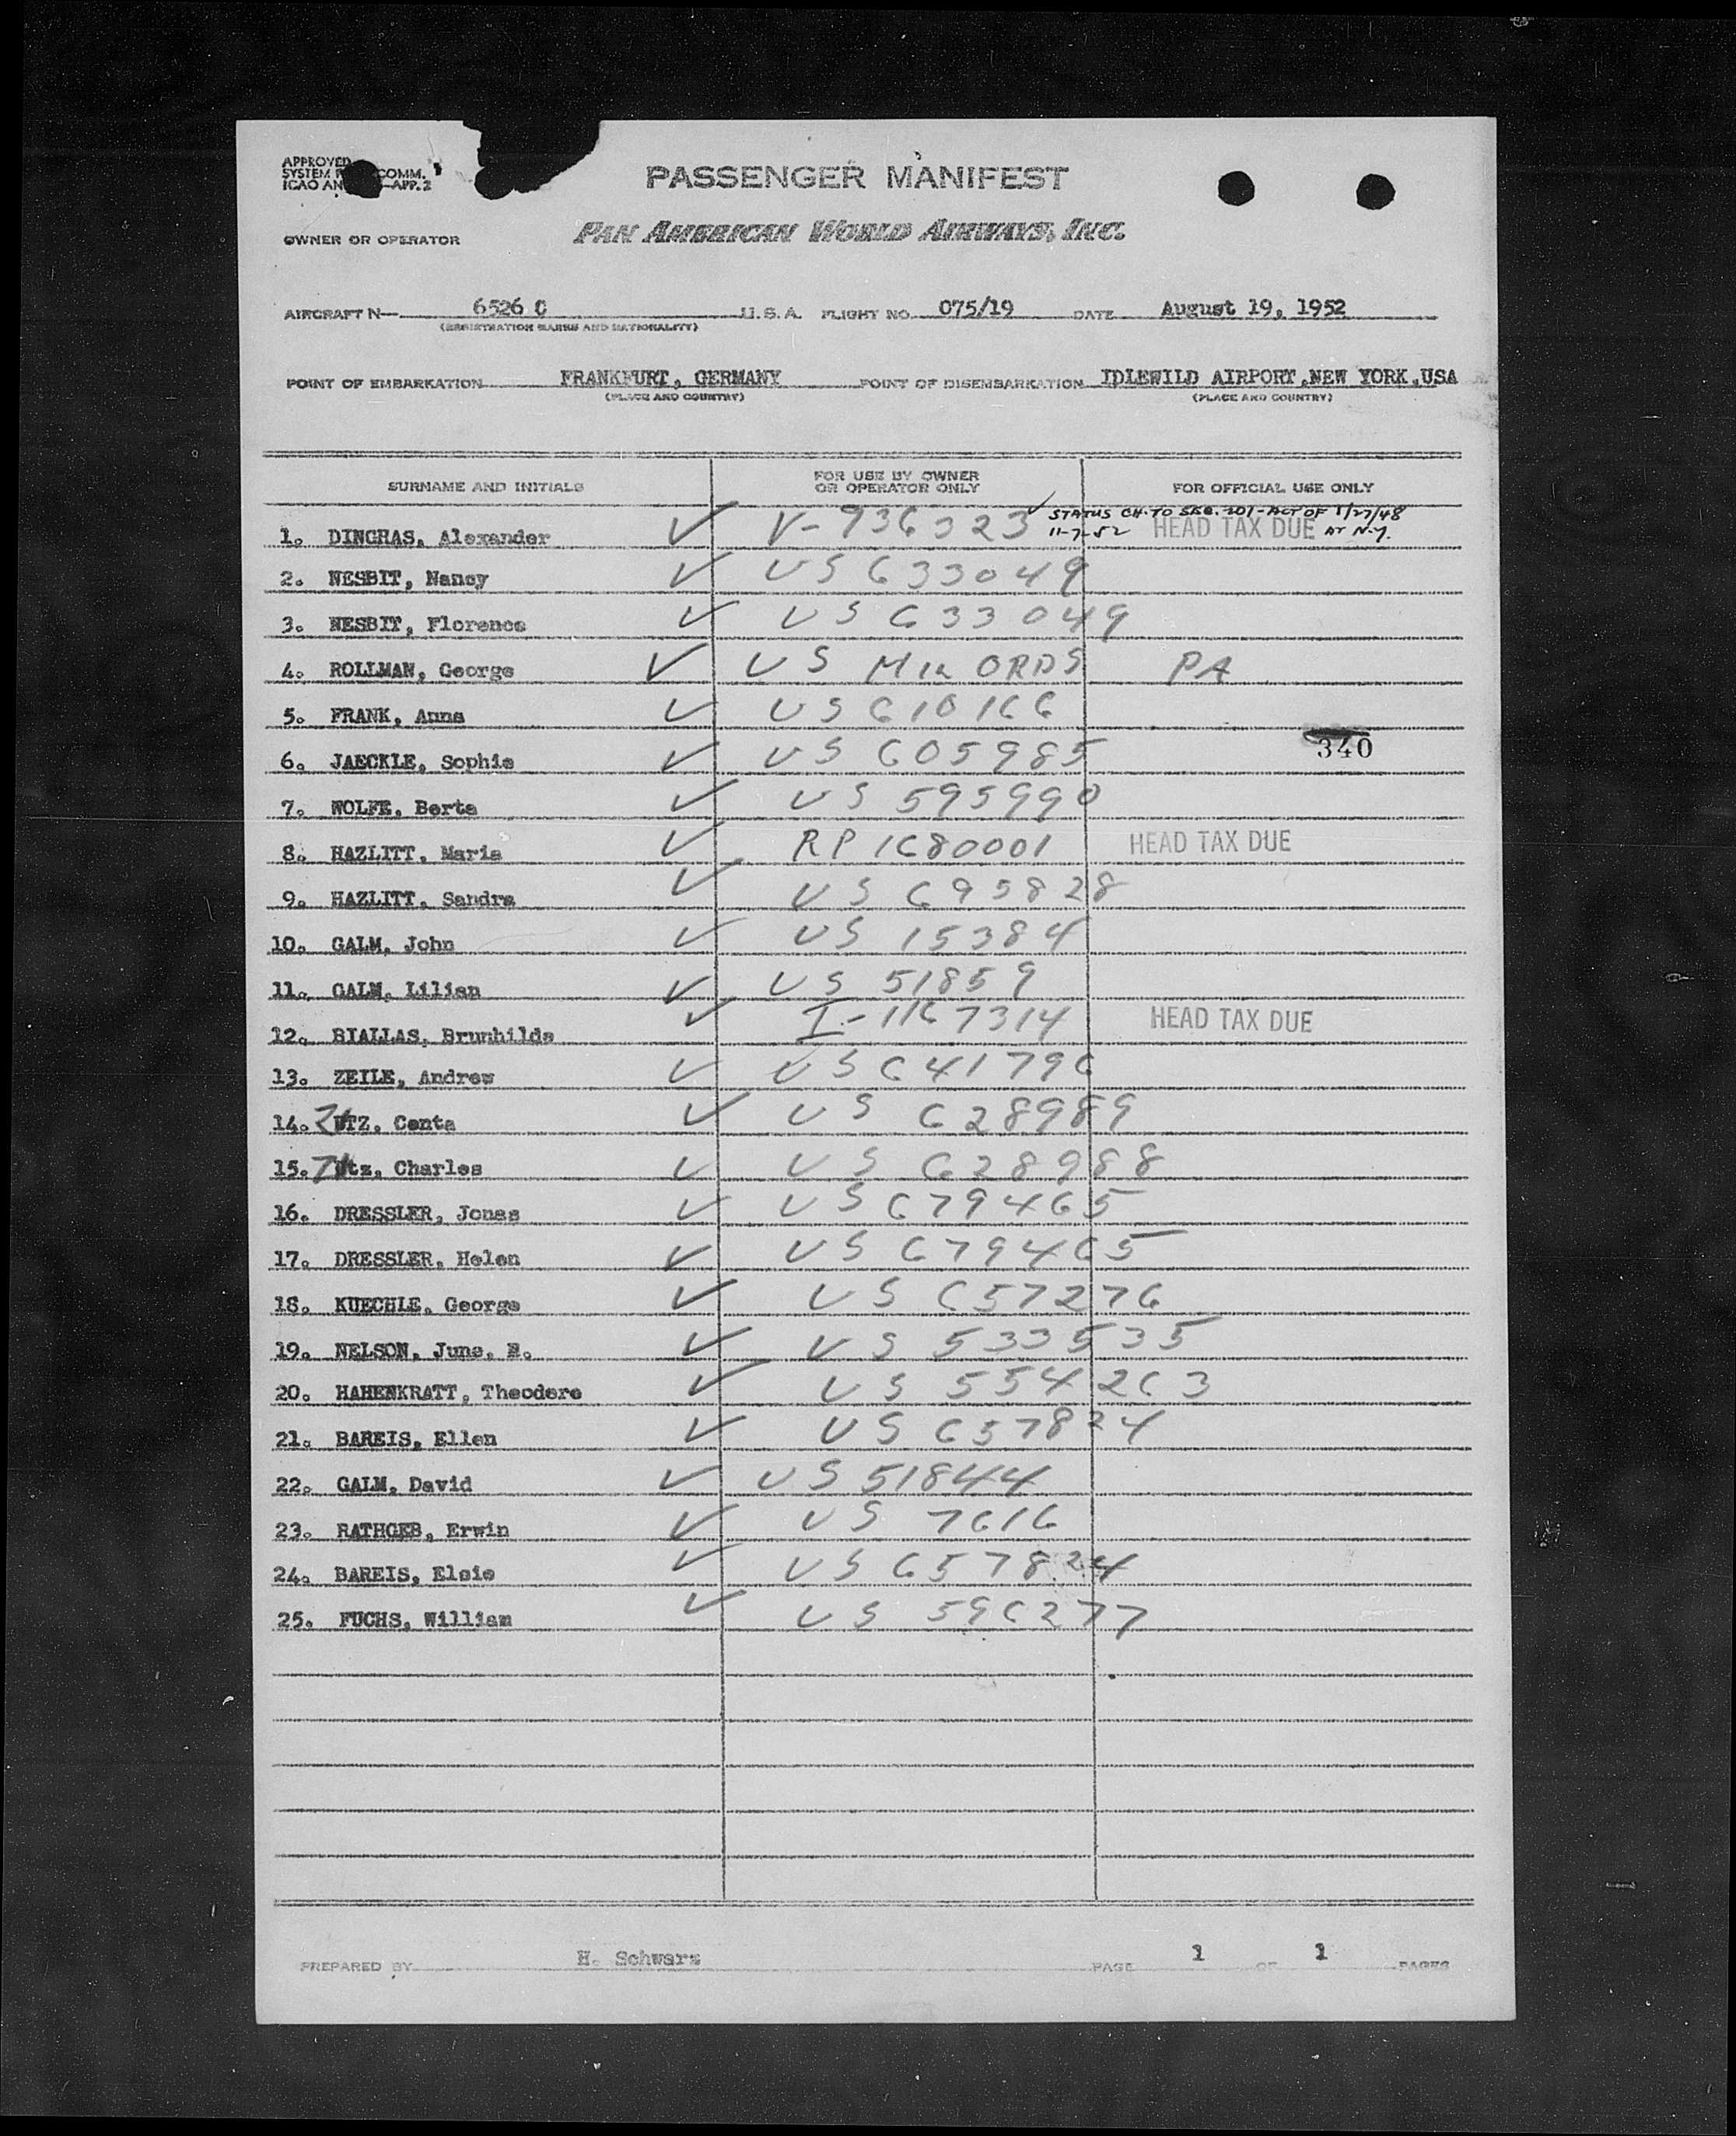 APPROVED
SYSTEM COMM.
ICAO AN APP. 2
PASSENGER MANIFEST
OWNER OR OPERATOR PAN AMERICAN WORLD AIRWAYS, INC.
AIRCRAFT N— 6526 C U.S.A. FLIGHT NO. 075/19 DATE August 19, 1952
(REGISTRATION MARKS AND NATIONALITY)
POINT OF EMBARKATION FRANKFURT, GERMANY POINT OF DISEMBARKATION IDLEWILD AIRPORT,NEW YORK,USA
(PLACE AND COUNTRY) (PLACE AND COUNTRY)
SURNAME AND INITIALS FOR USE BY OWNER OR OPERATOR ONLY FOR OFFICIAL USE ONLY
STATUS CH. TO SEC. 201 - ACT OF 1/27/48
1. DINGHAS, Alexander ✓ V-936323 ✓ 11-7-52 HEAD TAX DUE AT N.Y.
2. NESBIT, Nancy ✓ US 633049
3. NESBIT, Florence ✓ US 633049
4. ROLLMAN, George ✓ US Mil ORDS PA
5. FRANK, Anna ✓ US 610166
6. JAECKLE, Sophie ✓ US 605985 340
7. WOLFE, Berta ✓ US 595990
8. HAZLITT, Maria ✓ RP 1680001 HEAD TAX DUE
9. HAZLITT, Sandra ✓ US 695828
10. GALM, John ✓ US 15384
11. GALM, Lilian ✓ US 51859
12. BIALLAS, Brunhilde ✓ I-1167314 HEAD TAX DUE
13. ZEILE, Andrew ✓ US 641796
14. UTZ, Centa ✓ US 628989
15. Utz, Charles ✓ US 628988
16. DRESSLER, Jonas ✓ US 679465
17. DRESSLER, Helen ✓ US 679465
18. KUECHLE, George ✓ US 657276
19. NELSON, June, E. ✓ US 533535
20. HAHENKRATT, Theodore ✓ US 554263
21. BAREIS, Ellen ✓ US 657824
22. GALM, David ✓ US 51844
23. RATHGEB, Erwin ✓ US 7616
24. BAREIS, Elsie ✓ US 657824
25. FUCHS, William ✓ US 596277
PREPARED BY H. Schwarz PAGE 1 OF 1 PAGES